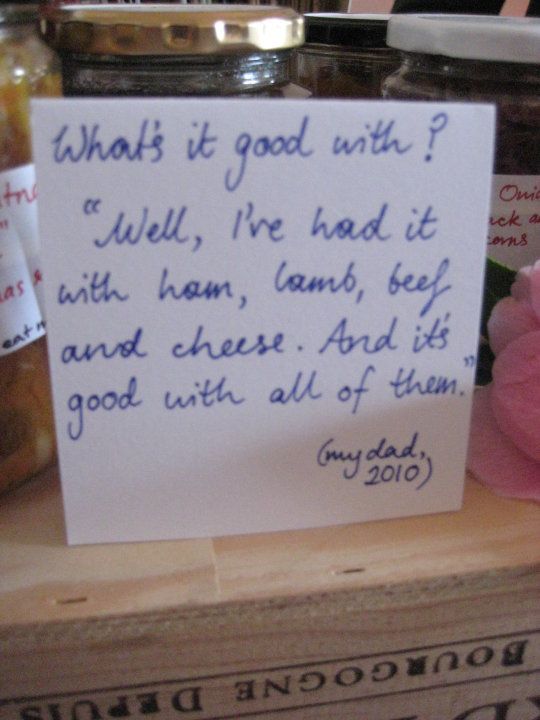 What's it good with?
"Well, I've had it
with ham, lamb, beef
and cheese. And it's
good with all of them."
(my dad,
2010)
Onio
as &
eat
BOURGOGNE DEPUIS